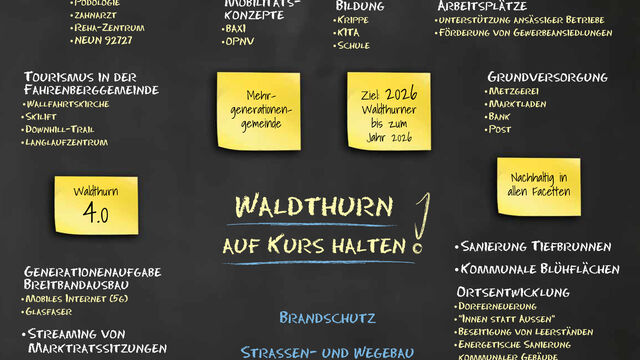 • Podologie
• Zahnarzt
• Reha-Zentrum
• NEUN 92727
Mobilitäts-
konzepte
• BAXI
• OPNV
Bildung
• Krippe
• KITA
• Schule
Arbeitsplätze
• Unterstützung ansässiger Betriebe
• Förderung von Gewerbeansiedlungen
Tourismus in der
Fahrenberggemeinde
• Wallfahrtskirche
• Skilift
• Downhill-Trail
• Langlaufzentrum
Mehr-
generationen-
gemeinde
Ziel: 2026
Waldthurner
bis zum
Jahr 2026
Grundversorgung
• Metzgerei
• Marktladen
• Bank
• Post
Waldthurn
4.0
Nachhaltig in
allen Facetten
Waldthurn
auf Kurs halten!
Generationenaufgabe
Breitbandausbau
• Mobiles Internet (5G)
• Glasfaser
• Streaming von
Marktratssitzungen
Brandschutz
Strassen- und Wegebau
• Sanierung Tiefbrunnen
• Kommunale Blühflächen
Ortsentwicklung
• Dorferneuerung
• "Innen statt Aussen"
• Beseitigung von Leerständen
• Energetische Sanierung
kommunaler Gebäude